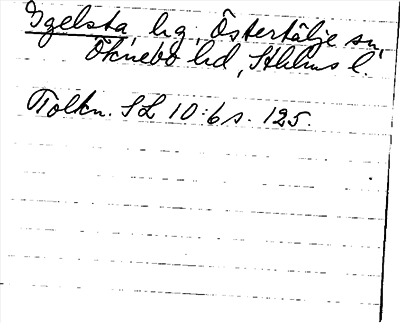 Igelsta, hg, Östertälje sn,
Öknebo hd, Sthlms l.
Tolkn. SL 10:6 s. 125.